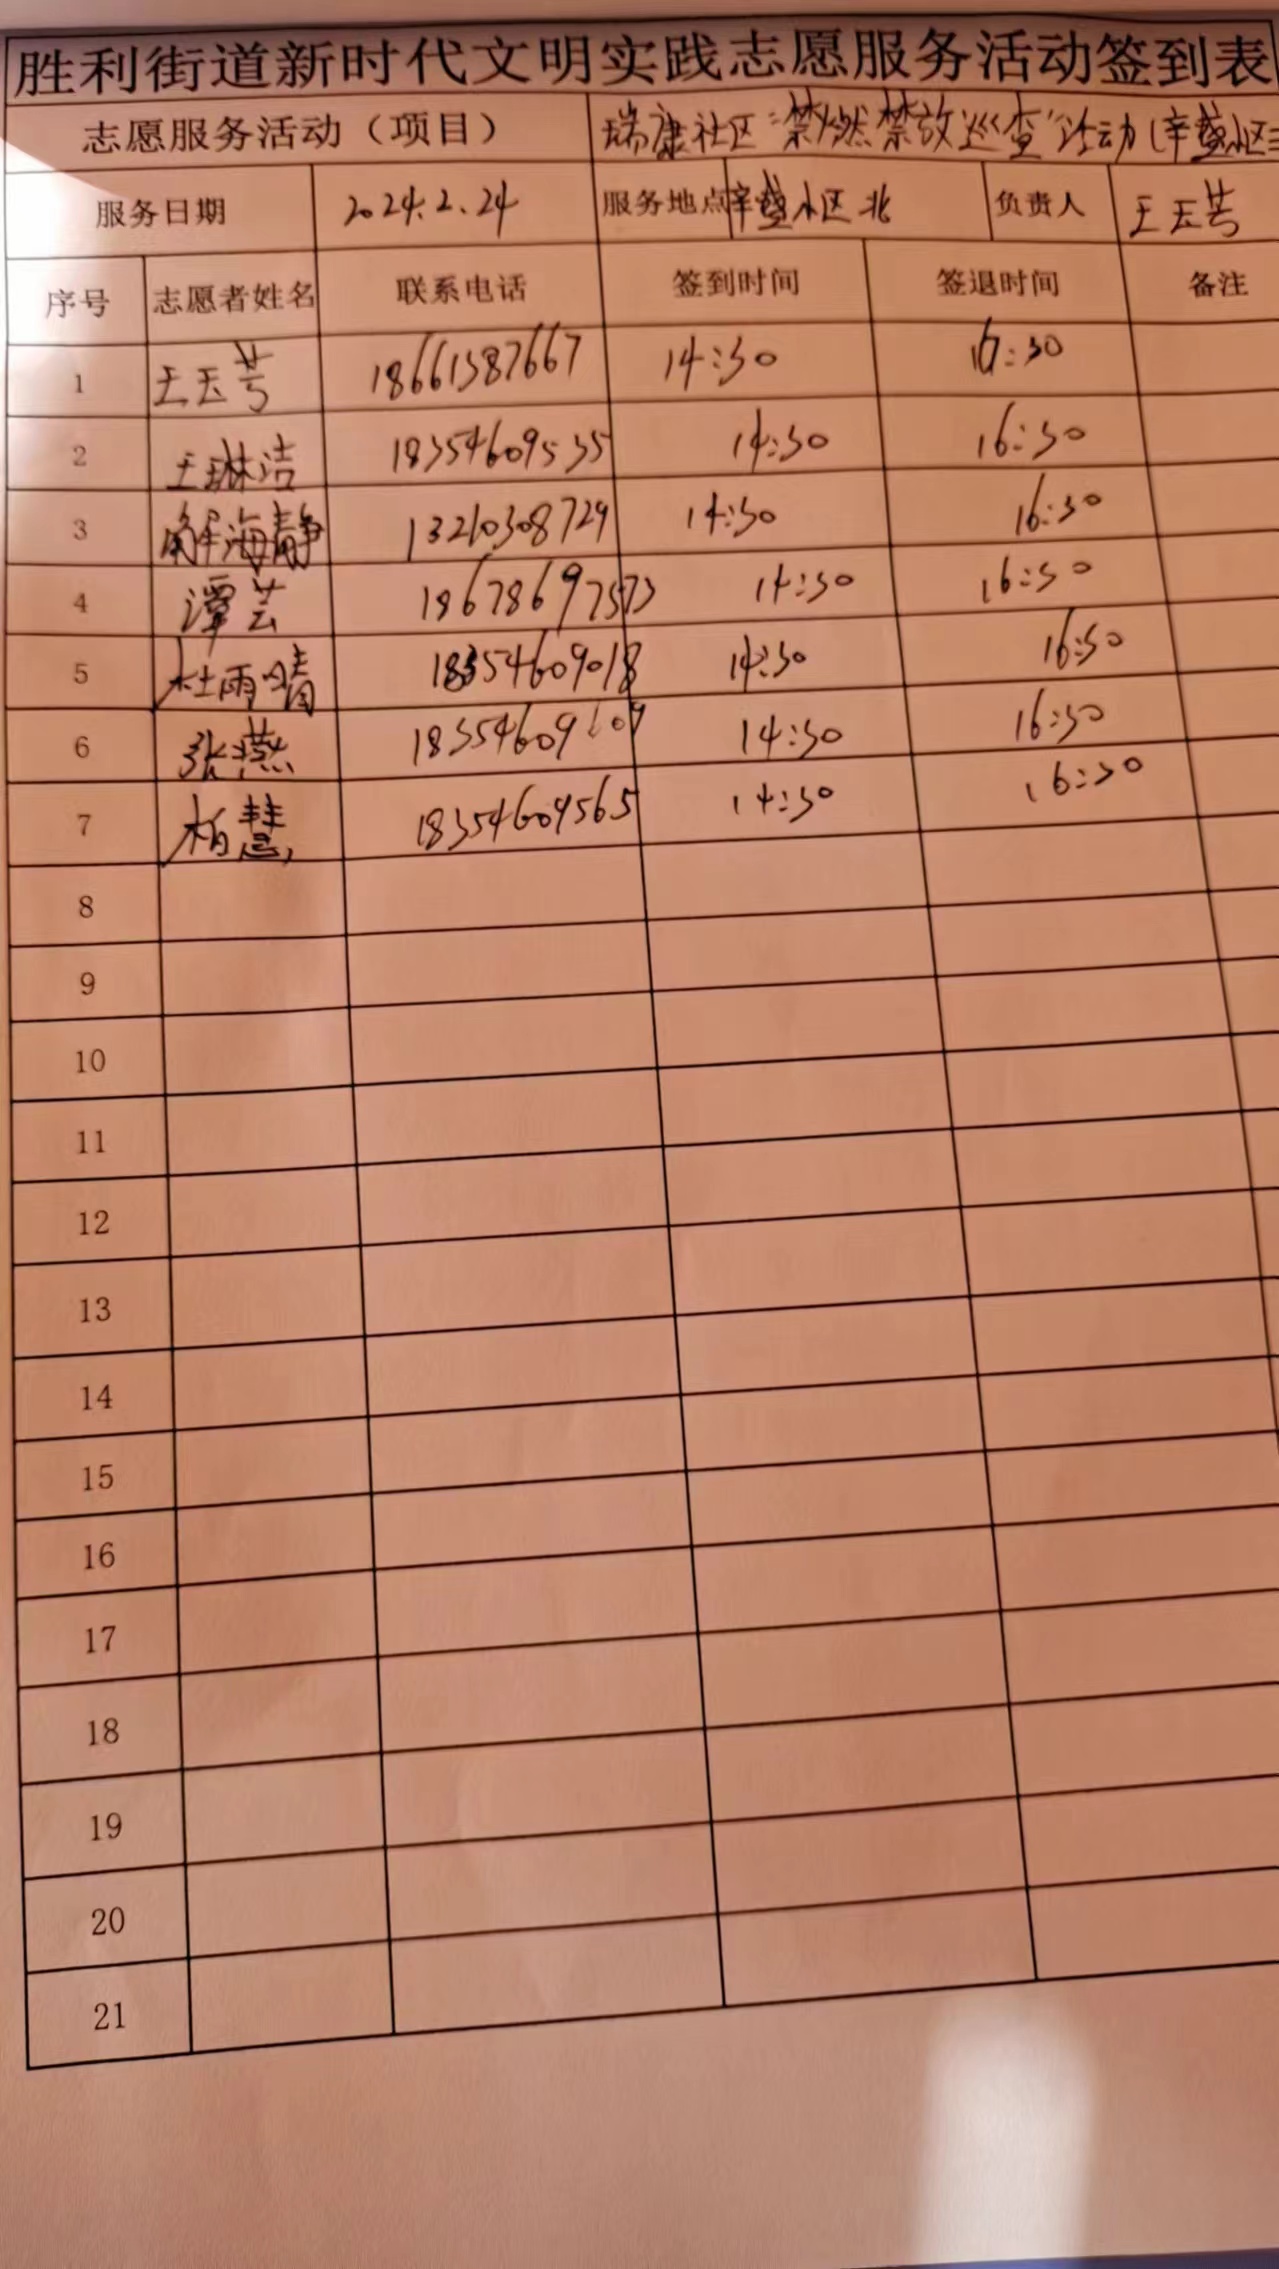 胜利街道新时代文明实践志愿服务活动签到表
志愿服务活动（项目） 瑞康社区“禁燃禁放巡查”活动（辛盛小区
服务日期 2024.2.24 服务地点 辛盛小区北 负责人 王玉芳
序号 志愿者姓名 联系电话 签到时间 签退时间 备注
1 王玉芳 18661387667 14:30 16:30
2 王琳洁 18354609535 14:30 16:30
3 解海静 13210308729 14:30 16:30
4 谭芸 18678697573 14:30 16:30
5 杜雨晴 18354609018 14:30 16:30
6 张燕 14:30 16:30
7 柏慧 18354609565 14:30 16:30
8
9
10
11
12
13
14
15
16
17
18
19
20
21